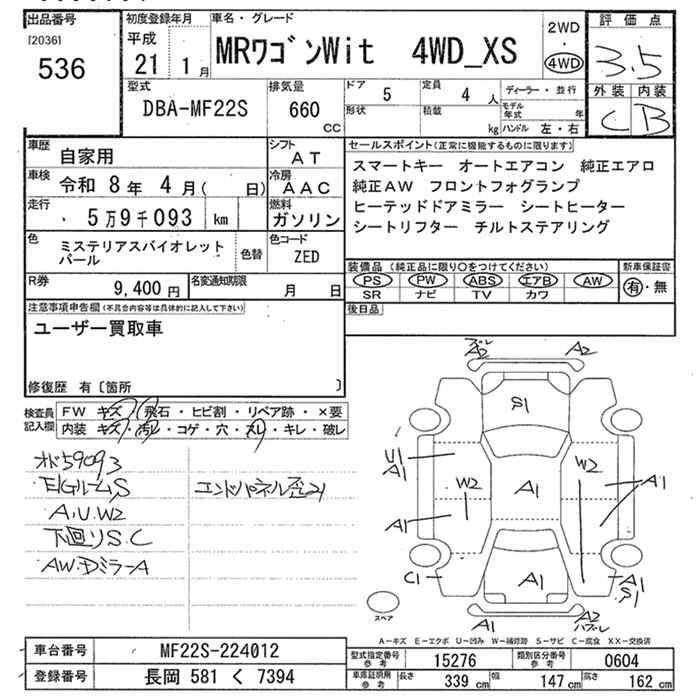 出品番号
[20361]
536
初度登録年月
平成
21 1月
車名・グレード
MRワゴンWit 4WD_XS
2WD
・
4WD
評価点
3.5
外装 内装
C B
型式
DBA-MF22S
排気量
660
CC
ドア 5
定員 4 人
形状
積載 kg
ディーラー・並行
モデル年式 年
ハンドル 左・右
車歴 自家用
シフト AT
車検 令和 8年 4月( 日)
冷房 AAC
走行 5万9千093 km
燃料 ガソリン
色 ミステリアスバイオレットパール
色替
色コード ZED
R券 9,400円
名変通知期限 月 日
セールスポイント(正常に機能するものに限ります)
スマートキー オートエアコン 純正エアロ
純正AW フロントフォグランプ
ヒーテッドドアミラー シートヒーター
シートリフター チルトステアリング
装備品 (純正品に限り○をつけてください)
新車保証書
PS PW ABS エアB AW
有・無
SR ナビ TV カワ
後日品
注意事項申告欄(不具合内容等は具体的に記入して下さい)
ユーザー買取車
修復歴 有〔箇所 〕
検査員記入欄
FW キズ・飛石・ヒビ割・リペア跡・×要
内装 キズ・汚レ・コゲ・穴・スレ・キレ・破レ
オド59093
E/GルームS
エンドパネル歪21
A.U.W2
下廻りS.C
AW.DミラーA
A2 A2
S1
U1
A1
W2
W2
A1
A1
A1
C1
A1
A1
S1
A1
A2
スペア
A-キズ E-エクボ U-凹み W-補修跡 S-サビ C-腐食 XX-交換済
車台番号 MF22S-224012
登録番号 長岡 581 く 7394
型式指定番号 参考 15276
類別区分番号 参考 0604
車庫証明用 参考
長さ 339 cm
幅 147 cm
高さ 162 cm